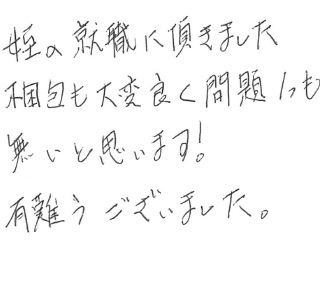 姪の就職に頂きました
梱包も大変良く問題1つも
無いと思います!
有難うございました。